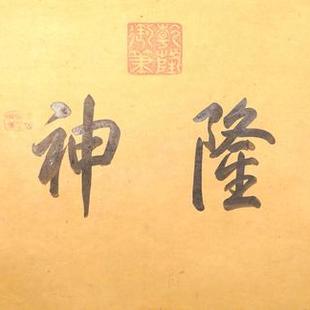 乾隆御筆
隆神